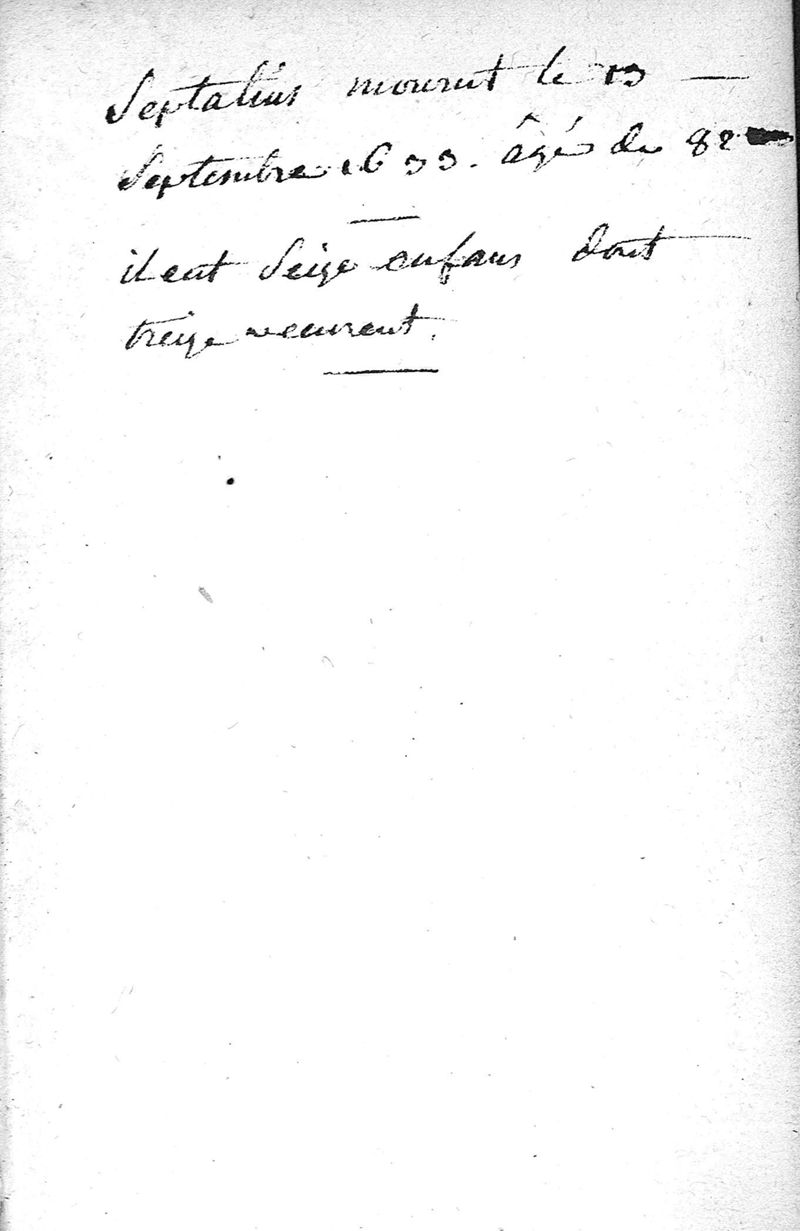 Septalius mourut le 13 —
Septembre 1633. âgé de 82
il eut seize enfans dont
treize vecurent.